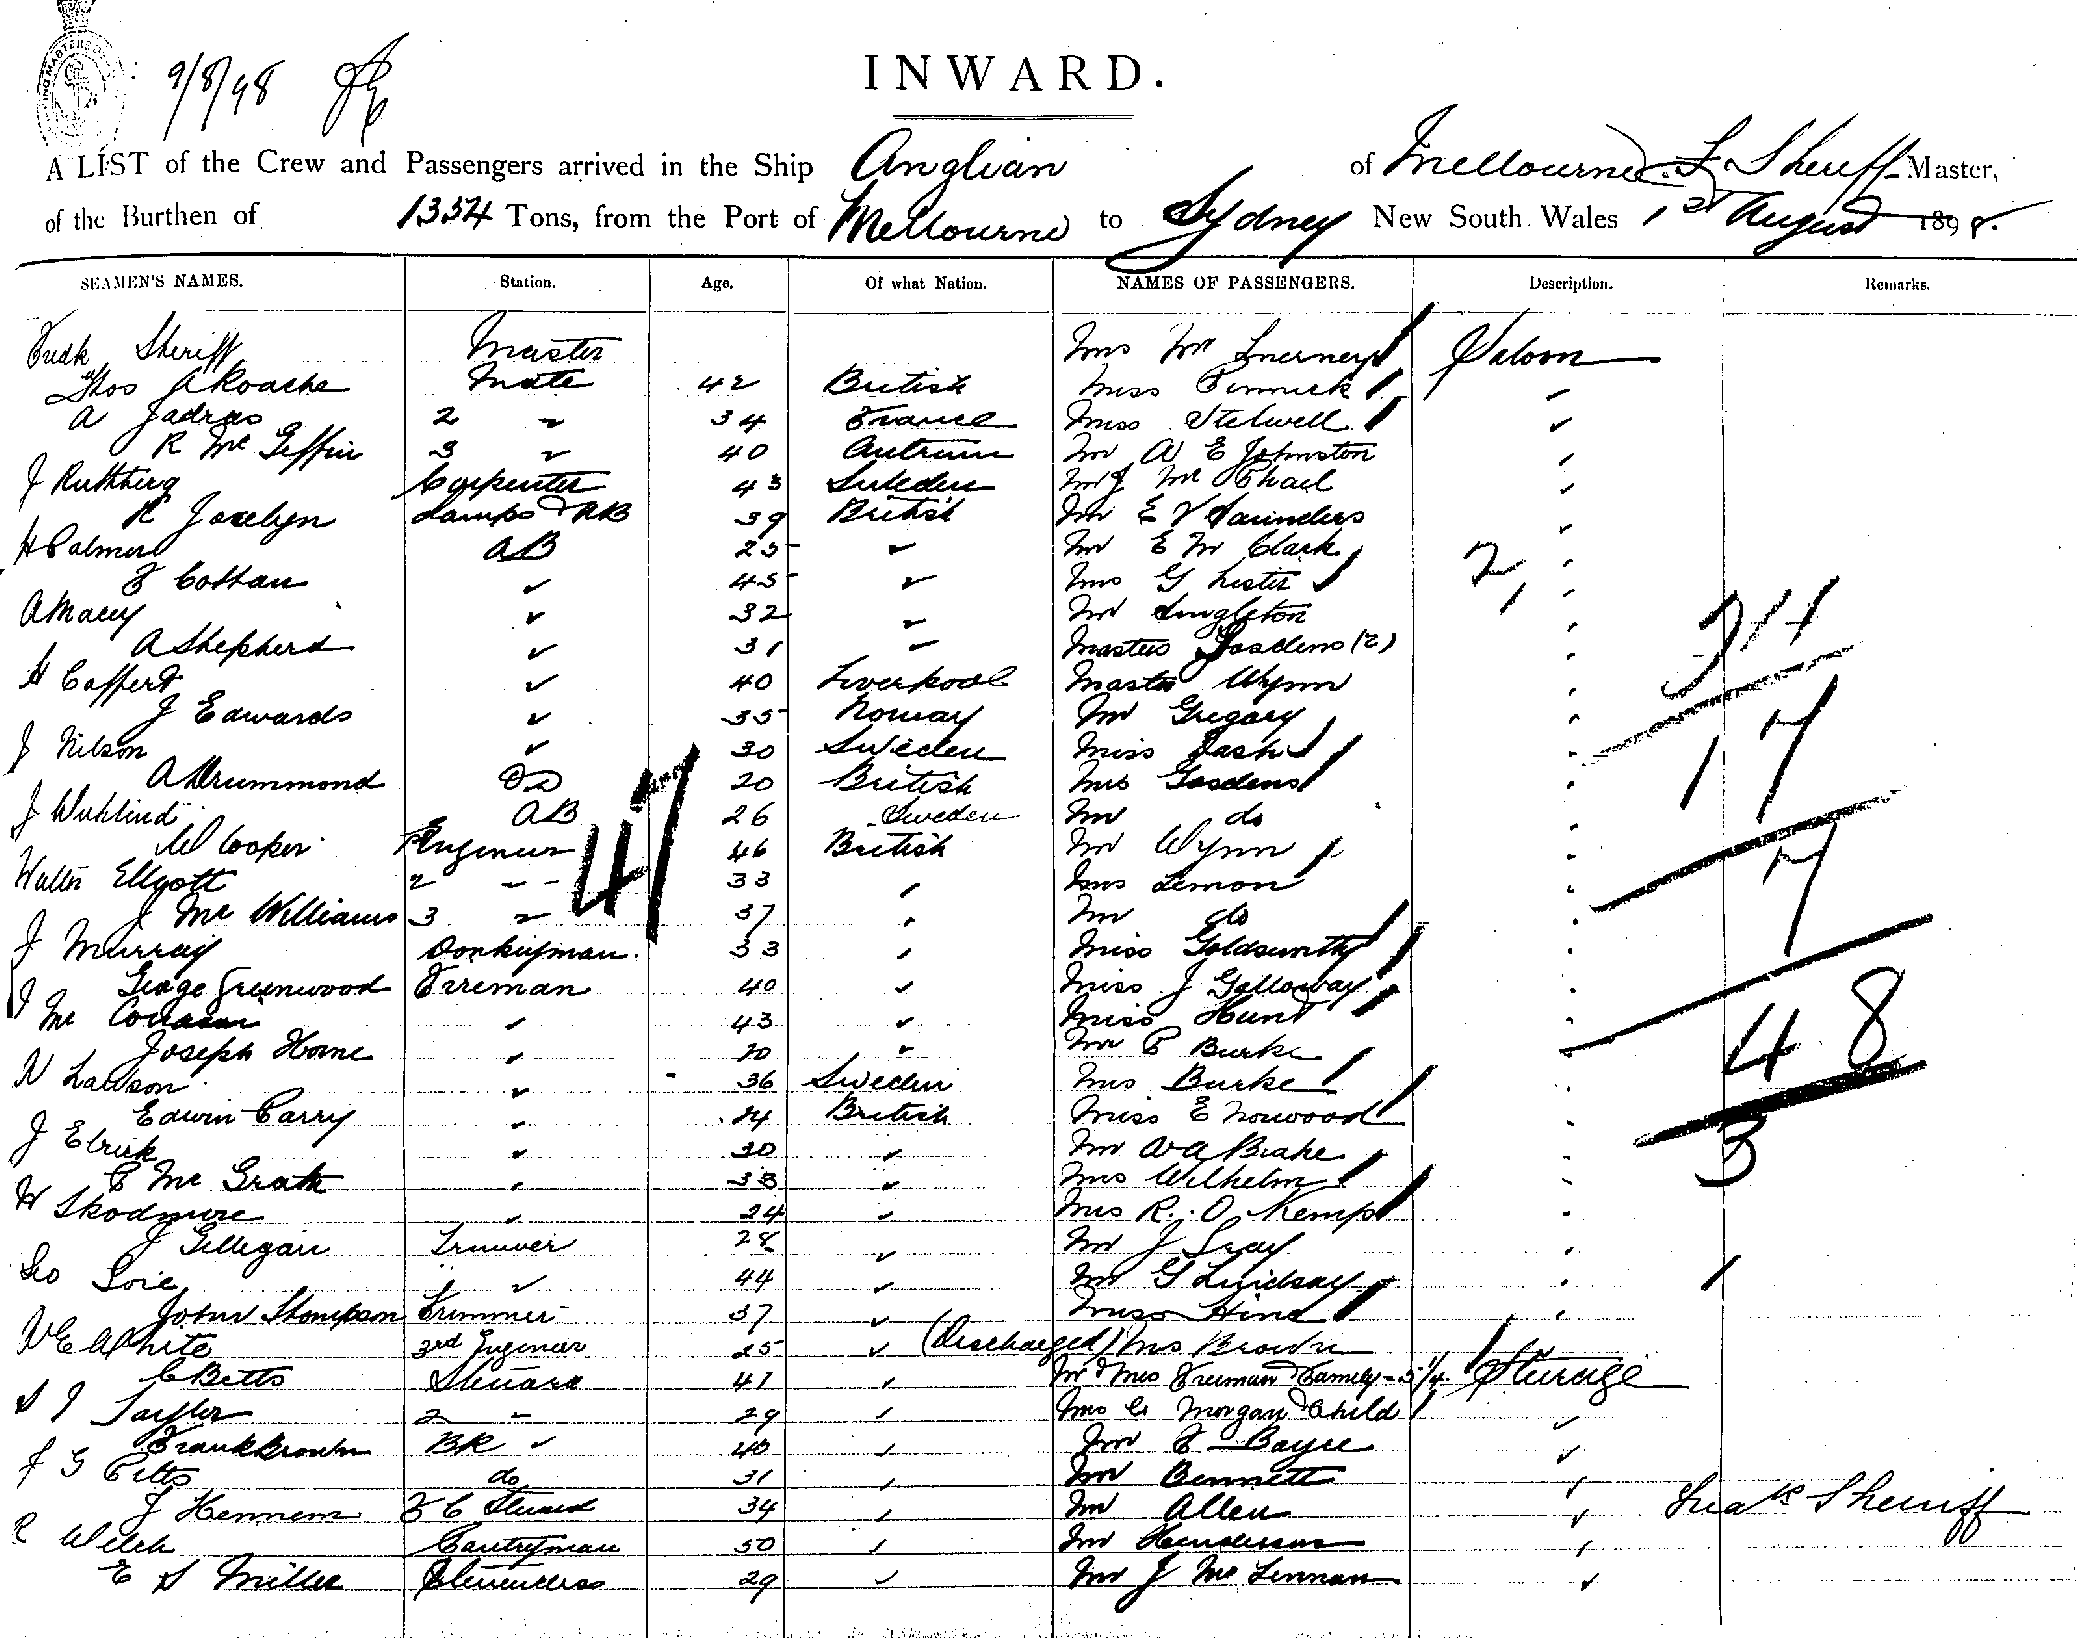 9/8/98
INWARD.
A LIST of the Crew and Passengers arrived in the Ship Anglian of Melbourne, F Sheriff Master,
of the Burthen of 1354 Tons, from the Port of Melbourne to Sydney New South Wales 1st August 1898.
SEAMEN'S NAMES. Station. Age. Of what Nation. NAMES OF PASSENGERS. Description. Remarks.
Fredk Sheriff Master Mrs Mc Inerney Saloon
Thos A Roache Mate 42 British Miss Pinnick
A Jadras 2 " 34 France Miss Stelwell
R Mc Geffin 3 " 40 Antrim Mr A E Johnston
J Ruthberg Carpenter 43 Sweden Mr J Mc Phail
R Jocelyn Lamps & AB 39 British Mr E V Saunders
H Palmer AB 25 " Mr E M Clark 2
F Cottan " 45 " Mrs G Lister
A Macey " 32 " Mr Singleton 24
A Shepherd " 31 " Masters Gosdens (2)
H Caffert " 40 Liverpool Master Wynn
J Edwards " 35 Norway Mr Gregory 17
J Nilson " 30 Sweden Miss Dash
A Drummond OS 20 British Mrs Gosdens
J Wihlind AB 26 Sweden Mr do
W Cooper Engineer 47 46 British Mr Wynn 7
Walter Ellyott 2 " 33 " Mrs Lemon
J Mc Williams 3 " 37 " Mr do
J Murray Donkeyman. 33 " Miss Goldsworthy
George Greenwood Fireman 40 " Miss J Galloway
J Mc " 43 " Miss Hunt 48
Joseph Horne " 20 " Mr P Burke
N Lawson " 36 Sweden Mrs Burke
Edwin Parry " 24 British Miss E Norwood 3
J Elrick " 30 " Mr W A Brake
P Mc Grath " 38 " Mrs Wilhelm
W Skodmore " 24 " Mrs R. O Kemp
J Gilligan Trimmer 28 " Mr J Gray
Geo " 44 " Mr G Lindsay
John Thompson Trimmer 37 " Miss Hind
W E White 3rd Engineer 25 " (Discharged) Mrs Brown
C Betts Steward 41 " Mr & Mrs Freeman & Family - 5 1/4 Steerage
S J Tayler 2 " 29 " Mrs C Morgan & Child
Frank Brown BR " 40 " Mr F Bayee
J G Pitts do 31 " Mr Bennett
J Hennem F C Steward 34 " Mr Allen Fredk Sheriff
R Welch Pantryman 50 " Mr Henderson
E S Miller Stewardess 29 " Mr J Mc Lennan